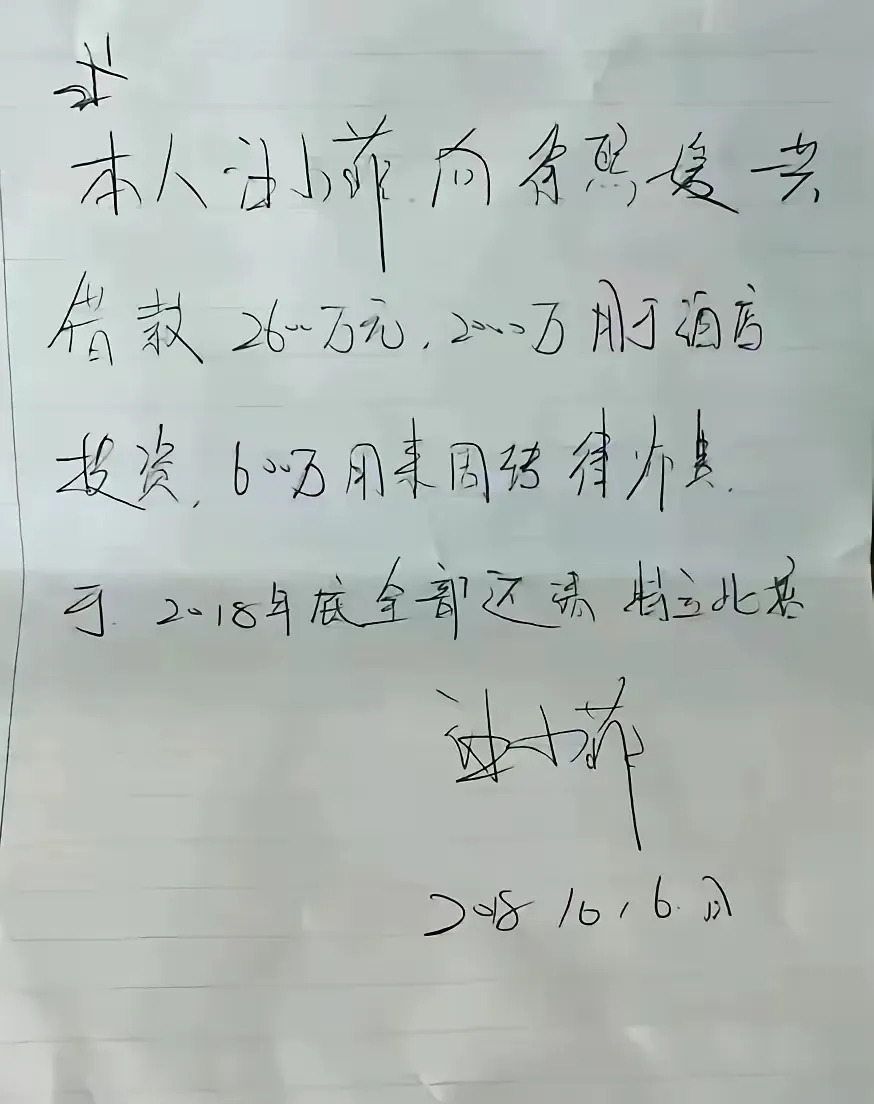 本人汪小菲向徐熙媛共
借款2600万元,2000万用于酒店
投资,600万用来周转律师费.
于2018年底全部还清 特立此据
汪小菲
2018 10,6.日